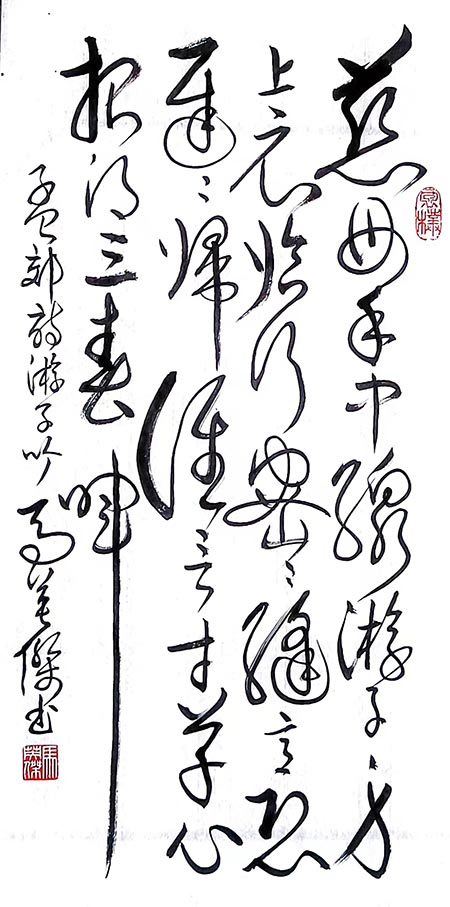 慈母手中線游子身
上衣臨行密々縫意恐
遲々歸誰言寸草心
報得三春暉
孟郊詩游子吟 馬英傑書